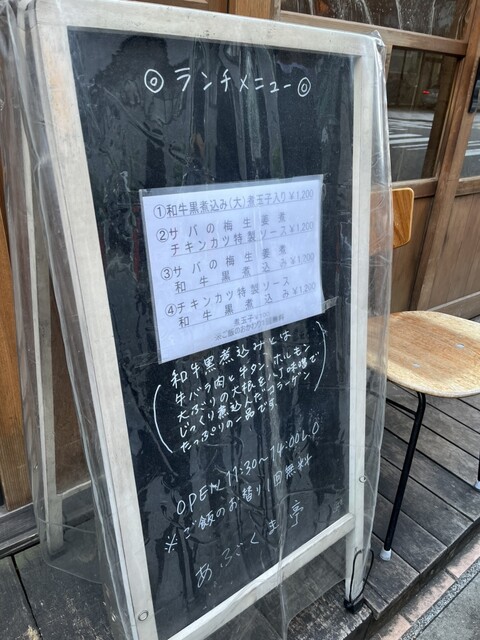 ◎ランチメニュー◎
①和牛黒煮込み(大)煮玉子入り¥1,200
②サバの梅生姜煮
チキンカツ特製ソース¥1,200
③サバの梅生姜煮
和牛黒煮込み¥1,200
④チキンカツ特製ソース
和牛黒煮込み¥1,200
煮玉子¥100
※ご飯のおかわり1回無料
和牛黒煮込みとは
牛バラ肉と牛タン、ホルモン
大ぶりの大根を八丁味噌で
じっくり煮込んだコラーゲン
たっぷりの一品です。
OPEN 11:30〜14:00 L.O
※ご飯のお替り1回無料
あぶくま亭